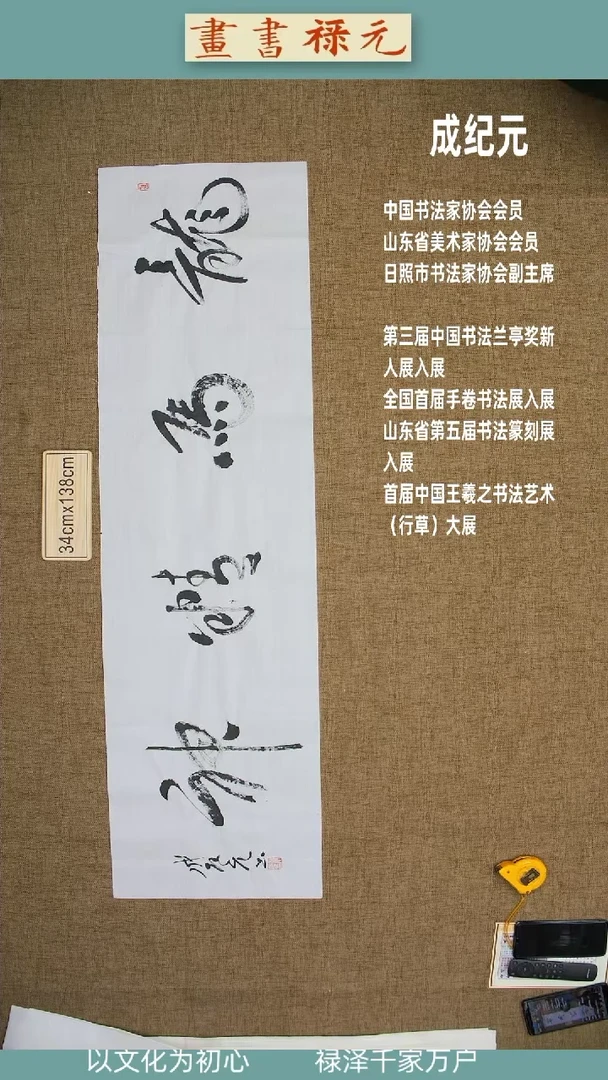 元禄書畫
成纪元
中国书法家协会会员
山东省美术家协会会员
日照市书法家协会副主席
第三届中国书法兰亭奖新
人展入展
全国首届手卷书法展入展
山东省第五届书法篆刻展
入展
首届中国王羲之书法艺术
（行草）大展
龍馬精神
成纪元
34cmx138cm
以文化为初心 禄泽千家万户